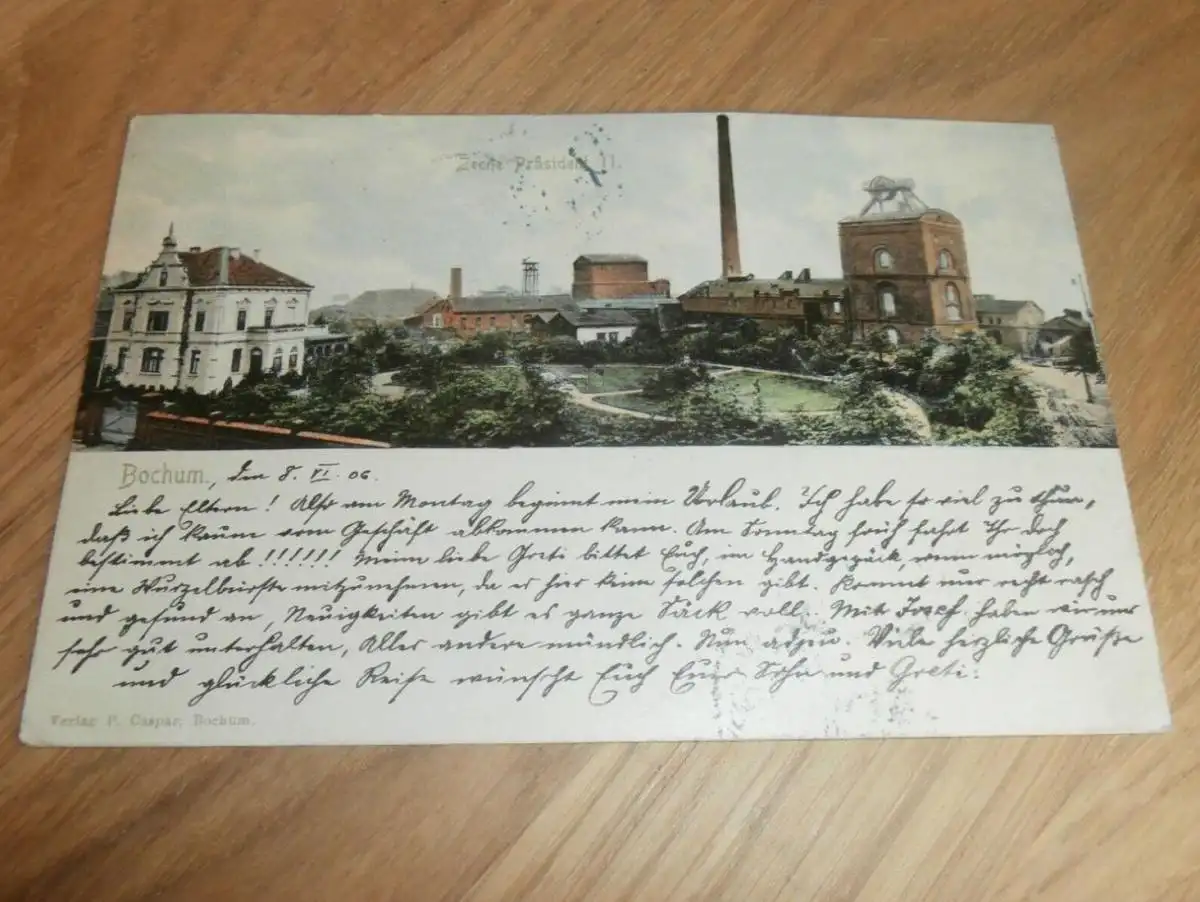 Zeche Präsident II.
Bochum., den 8. VI. 06.
Liebe Eltern! Also am Montag beginnt mein Urlaub. Ich habe so viel zu thun,
daß ich kaum vom Geschäft abkommen kann. Am Sonntag früh fahrt Ihr doch
bestimmt ab!!!!!! Meine liebe Greti bittet Euch, im Handgepäck, wenn möglich,
eine Wurzelbürste mitzunehmen, da es hier keine solchen gibt. Kommt nur recht rasch
und gesund an, Neuigkeiten gibt es ganze Säck voll. Mit Josef haben wir uns
sehr gut unterhalten, Alles andere mündlich. Nun adzu. Viele herzliche Grüße
und glückliche Reise wünscht Euch Euer Sohn und Greti.
Verlag P. Caspar, Bochum.